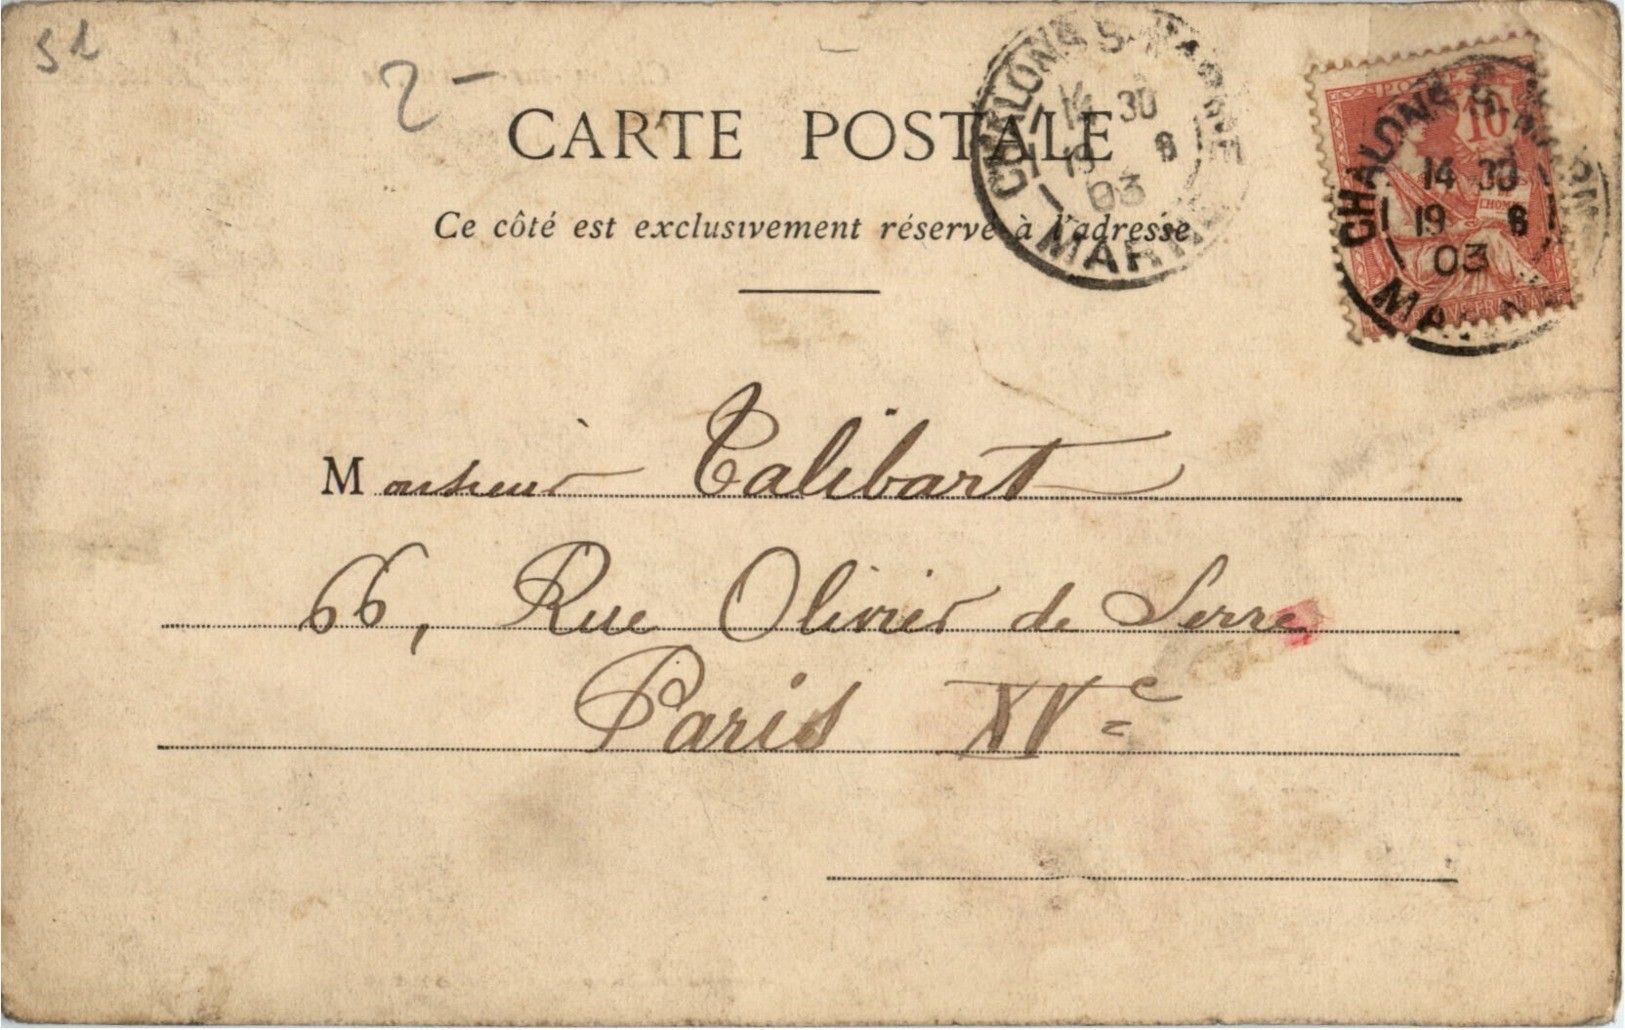 51
2-
CARTE POSTALE
Ce côté est exclusivement réservé à l'adresse
CHALONS S MARNE
14 30
19 8
03
MARNE
10
CHALONS S MARNE
14 30
19 8
03
MARNE
Monsieur Talibart
66, Rue Olivier de Serre
Paris XVe